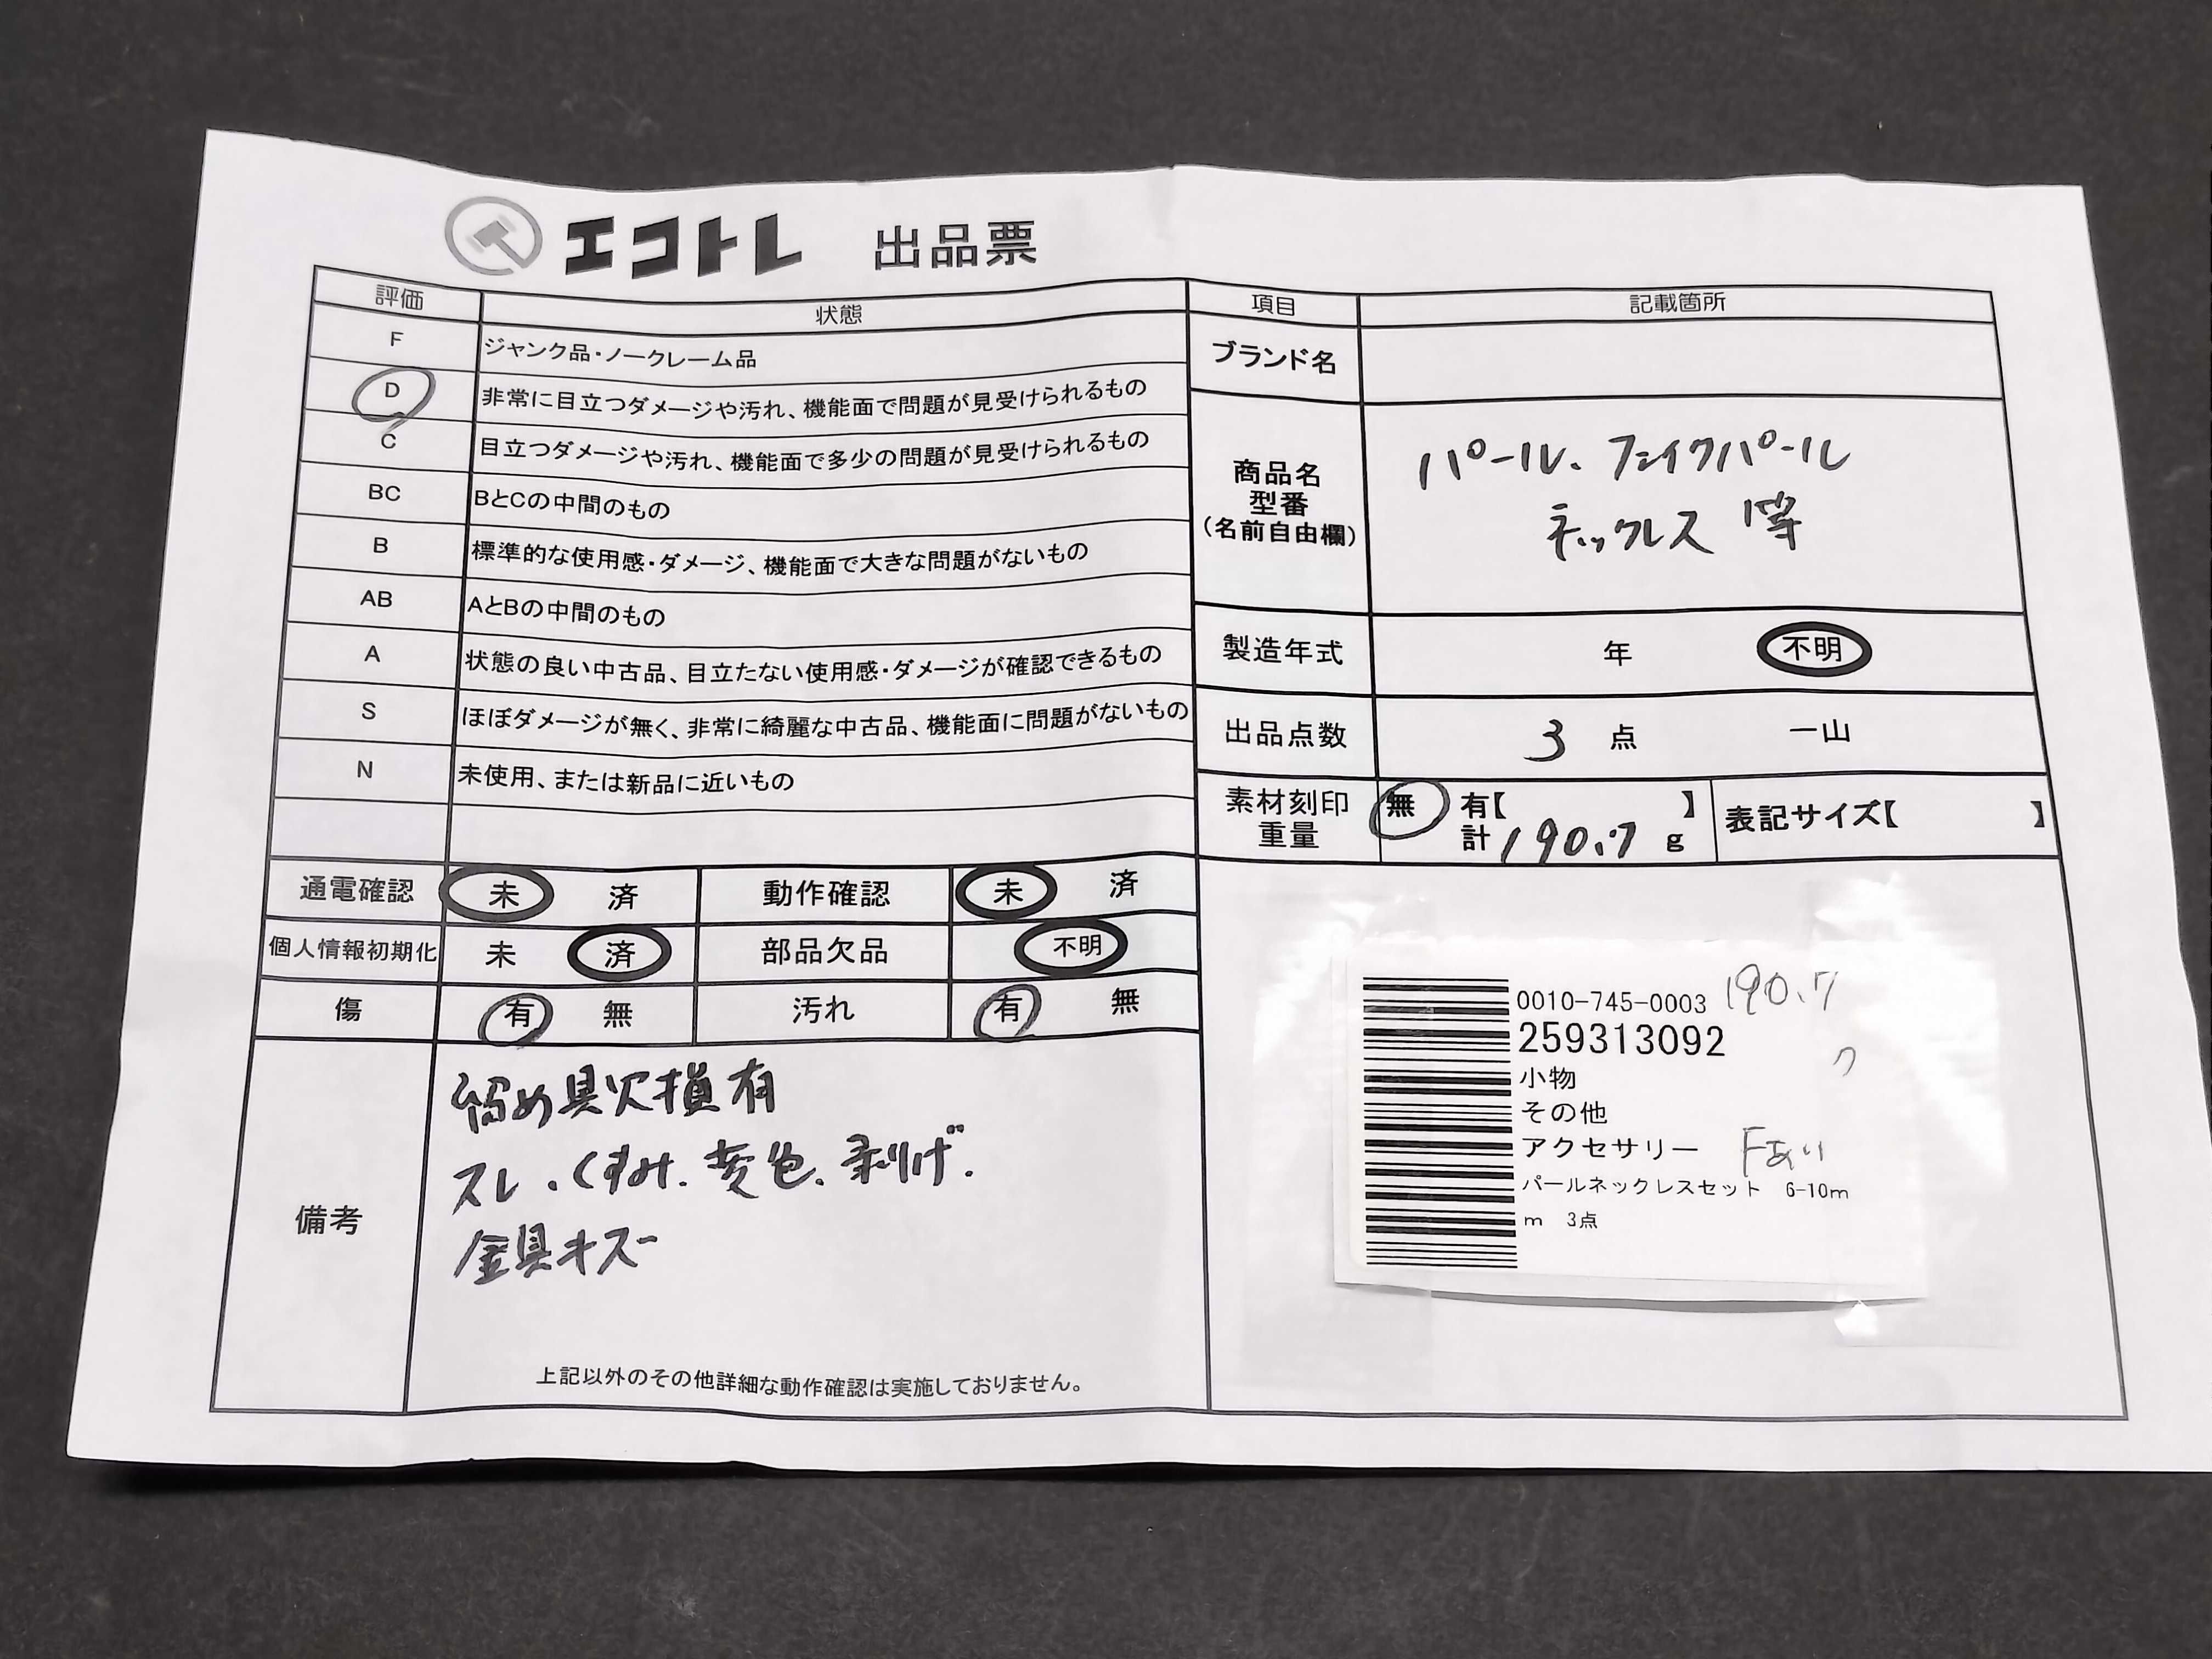 エコトレ 出品票
評価 状態
F ジャンク品・ノークレーム品
D 非常に目立つダメージや汚れ、機能面で問題が見受けられるもの
C 目立つダメージや汚れ、機能面で多少の問題が見受けられるもの
BC BとCの中間のもの
B 標準的な使用感・ダメージ、機能面で大きな問題がないもの
AB AとBの中間のもの
A 状態の良い中古品、目立たない使用感・ダメージが確認できるもの
S ほぼダメージが無く、非常に綺麗な中古品、機能面に問題がないもの
N 未使用、または新品に近いもの
通電確認 未 済 動作確認 未 済
個人情報初期化 未 済 部品欠品 不明
傷 有 無 汚れ 有 無
備考
留め具欠損有
スレ、くすみ、変色、剥げ、
金具キズ
上記以外のその他詳細な動作確認は実施しておりません。
項目 記載箇所
ブランド名
商品名
型番
(名前自由欄)
パール、フェイクパール
ネックレス 等
製造年式 年 不明
出品点数 3 点 一山
素材刻印
重量
無 有【 】
計 190.7 g
表記サイズ【 】
0010-745-0003 190.7
259313092
ク
小物
その他
アクセサリー Fあり
パールネックレスセット 6-10m
m 3点